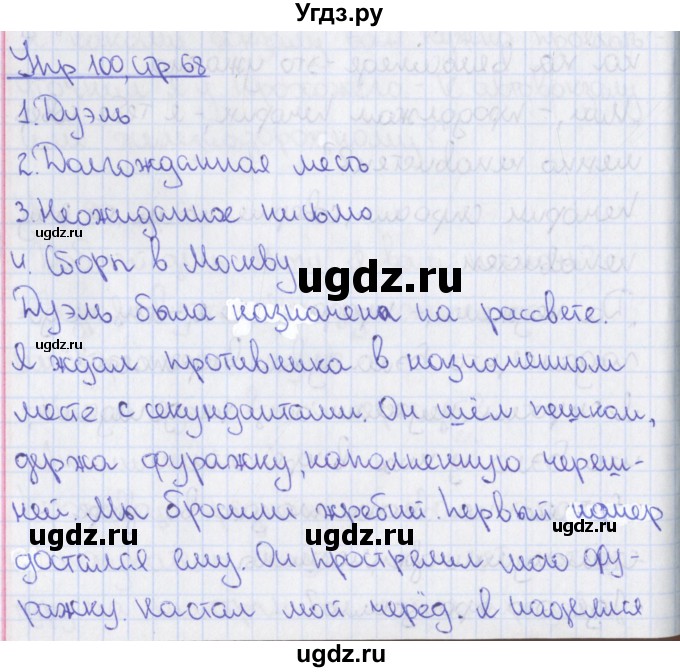 Угдз.ру
Упр 100, стр 68
1. Дуэль
2. Долгожданная месть
3. Неожиданное письмо
ugdz.ru
4. Сборы в Москву
ugdz.ru
Дуэль была назначена на рассвете.
ugdz.ru
Я ждал противника в назначенном
месте с секундантами. Он шёл пешком,
держа фуражку, наполненную череш-
ней. Мы бросили жребий. Первый номер
ugdz.ru ugdz.ru ugdz.ru
достался ему. Он прострелил мою фу-
ражку. Настал мой черёд. Я надеялся
ugdz.ru ugdz.ru